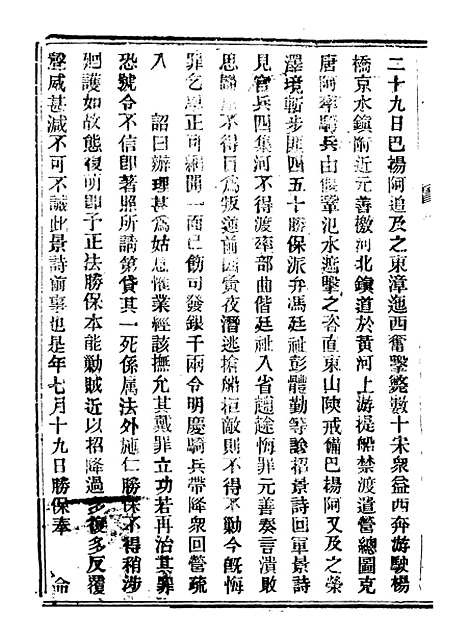 二十九日巴揚阿追及之東漳迤西奮擊斃數十宋衆益西奔游駛楊
橋京水鎭附近元善檄河北鎭道於黃河上游提船禁渡遣營總圖克
唐阿率騎兵由偃鞏汜水遮擊之咨直東山陝戒備巴揚阿又及之滎
澤境斬步匪四五十勝保派弁馮廷祉彭體勤等諭招景詩回軍景詩
見官兵四集河不得渡率部曲偕廷祉入省趨途悔罪元善奏言潰敗
思歸不得目爲叛逆前因黃夜潛逃搶船桓敵則不得不勦今旣悔
罪乞正司網開一面已飭司發銀千兩令明慶騎兵帶降衆回營疏
入　詔曰辦理甚爲姑息惟業經該撫允其戴罪立功若再治其罪
恐號令不信卽著照所請第貸其一死係屬法外施仁勝保不得稍涉
廻護如故態復萌卽予正法勝保本能勦賊近以招降過多復多反覆
聲威甚減不可不誡此景詩前事也是年七月十九日勝保奉　命